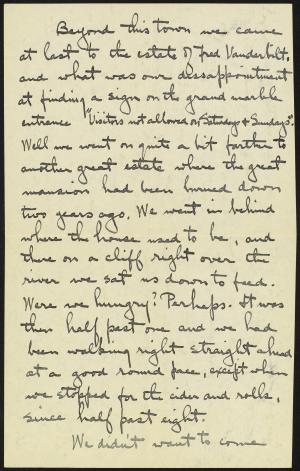 Beyond this town we came
at last to the estate of Fred Vanderbilt,
and what was our dissapointment
at finding a sign on the grand marble
entrance "Visitors not allowed on Saturdays & Sundays".
Well we went on quite a bit farther to
another great estate where the great
mansion had been burned down
two years ago. We went in behind
where the house used to be, and
there on a cliff right over the
river we sat us down to feed.
Were we hungry? Perhaps. It was
then half past one and we had
been walking right straight ahead
at a good round pace, except when
we stopped for the cider and rolls,
since half past eight.
We didn't want to come